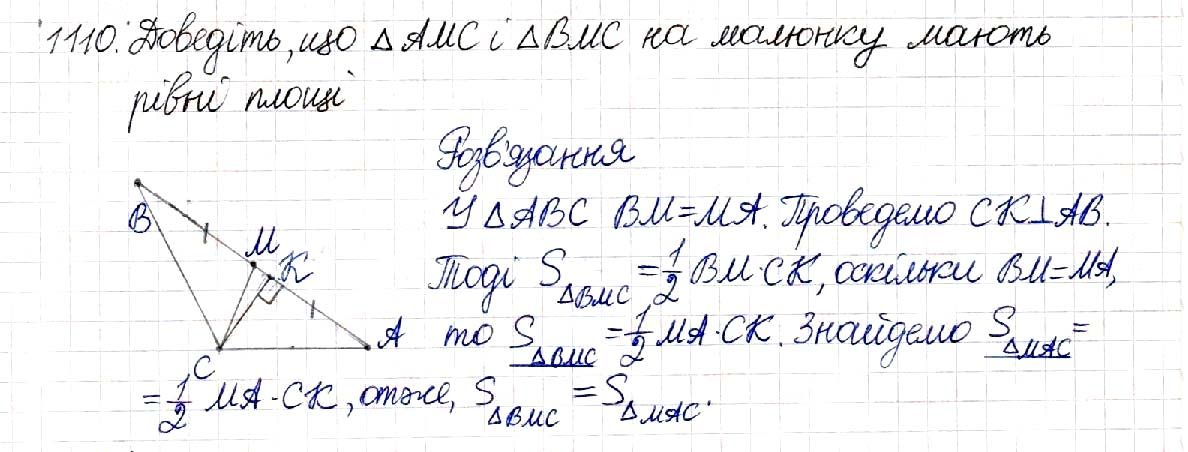 1110. Доведіть, що △AMC і △BMC на малюнку мають
рівні площі
Розв'язання
У △ABC BM=MA. Проведемо CK⊥AB.
Тоді S△BMC = 1/2 BM·CK, оскільки BM=MA,
то S△BMC = 1/2 MA·CK. Знайдемо S△MAC=
= 1/2 MA·CK, отже, S△BMC = S△MAC.
B
M
K
A
C